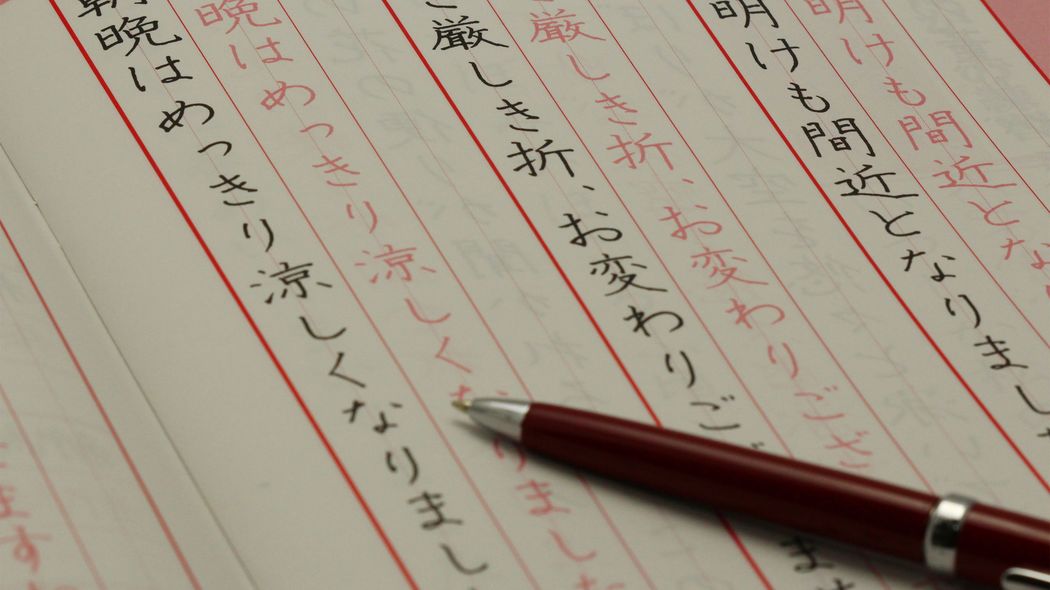 明けも間近とな
明けも間近となりまし
厳しき折、お変わりござ
厳しき折、お変わりご ま
晩はめっきり涼しくな りました
朝晩はめっきり涼しくなりまし
ます